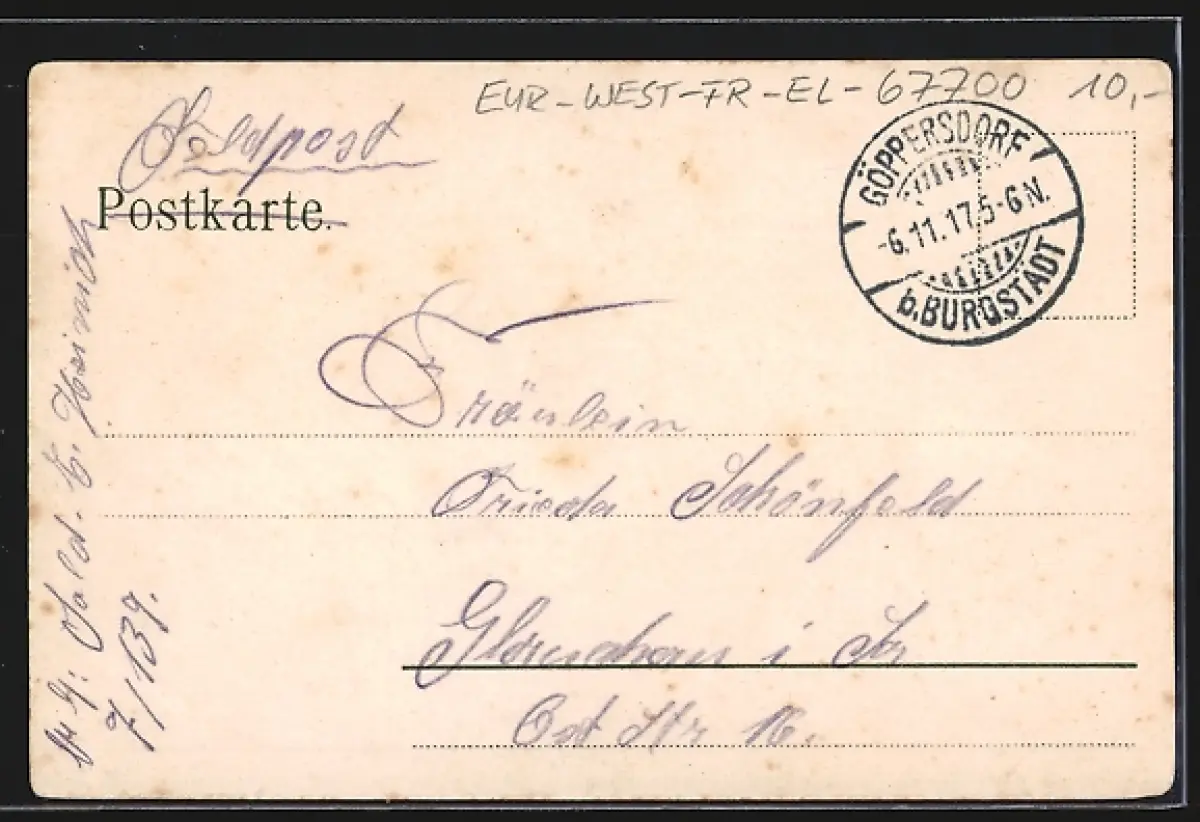 EUR-WEST-FR-EL-67700 10,-
Feldpost
Postkarte.
GÖPPERSDORF
-6.11.17.5-6N.
b.BURGSTÄDT
Fräulein
Frieda Schönfeld
Glauchau i Sa
Ost Str 16.
Sold. E. Heinrich
7/139.